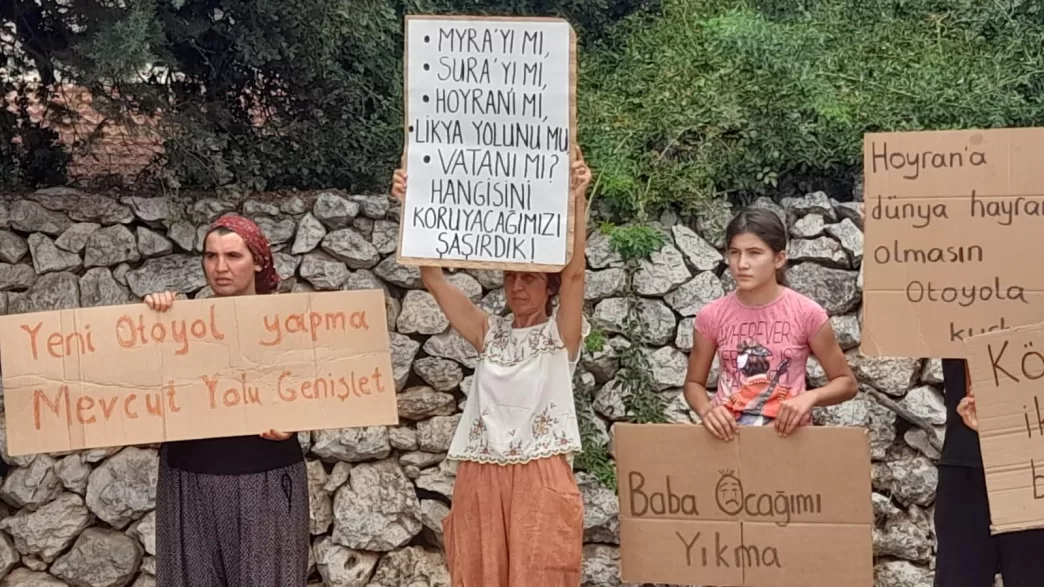 Yeni Otoyol yapma
Mevcut Yolu Genişlet
• MYRA'YI MI,
• SURA'YI MI,
• HOYRAN'I MI,
• LİKYA YOLUNU MU
• VATANI MI?
HANGİSİNİ
KORUYACAĞIMIZI
ŞAŞIRDIK!
WHEREVER
Baba Ocağımı
Yıkma
Hoyran'a
dünya hayran
olmasın
Otoyola